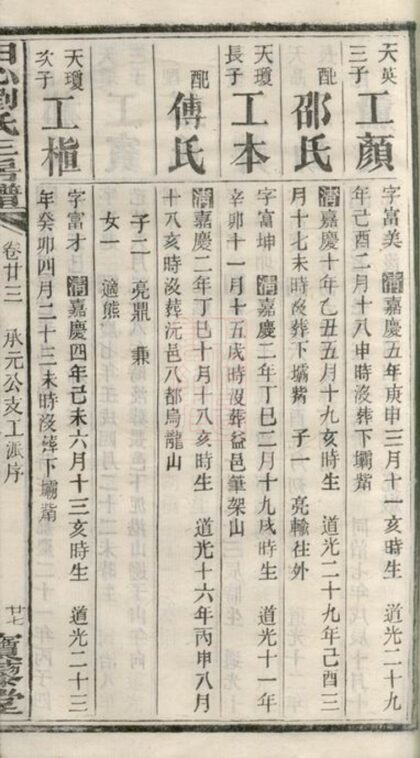 天英三子 工顏
字富美 清嘉慶五年庚申三月十一亥時生 道光二十九
年己酉二月十八申時沒葬下壩觜
配 邵氏
清嘉慶十年乙丑五月十九亥時生 道光二十九年己酉三
月十七未時沒葬下壩觜 子一 亮輸往外
天瓊長子 工本
字富坤 清嘉慶二年丁巳二月十九戌時生 道光十一年
辛卯十一月十五戌時沒葬益邑筆架山
配 傅氏
清嘉慶二年丁巳十月十八亥時生 道光十六年丙申八月
十八亥時沒葬沅邑八都烏龍山
子二 亮鼎 兼
女一 適熊
天瓊次子 工槓
字富才 清嘉慶四年己未六月十三亥時生 道光二十三
年癸卯四月二十三未時沒葬下壩觜
劉氏三房譜 卷廿三 承元公支工派序 廿七